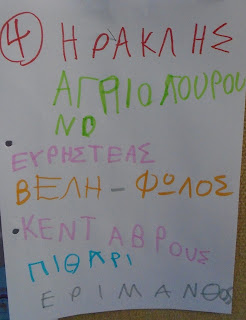 4 ΗΡΑΚΛΗΣ
ΑΓΡΙΟΛΟΥΡΟΥ
ΝΟ
ΕΥΡΗΣΤΕΑΣ
ΒΕΛΗ - ΦΩΛΟΣ
ΚΕΝΤΑΒΡΟΥΣ
ΠΙΘΑΡΙ
ΕΡΙΜΑΝΘΟΣ